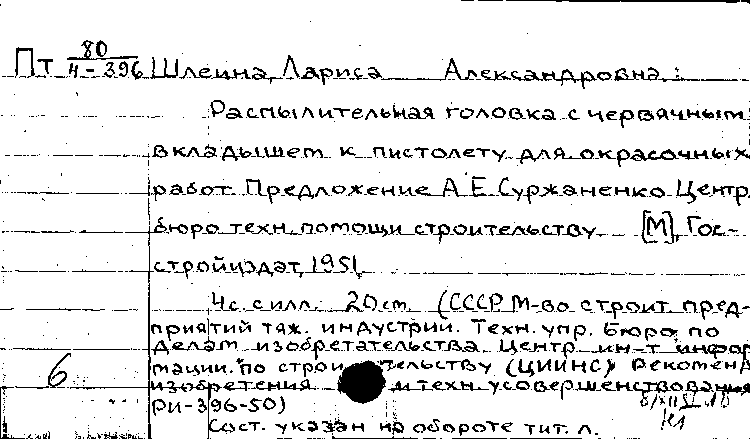 Пт 80/4-396 Шлеина, Лариса Александровна.:
Распылительная головка с червячным
вкладышем к пистолету для окрасочных
работ. Предложение А.Е.Суржаненко Центр.
бюро техн. помощи строительству. [М], Гос-
стройиздат, 1951.
4с. с илл. 20см. (СССР М-во строит. пред-
приятий тяж. индустрии. Техн. упр. Бюро по
делам изобретательства. Центр. ин-т инфор
мации. по строительству (ЦИИНС) Рекоменд
6
изобретения и техн. усовершенствования
РИ-396-50)
Сост. указан на обороте тит. л.